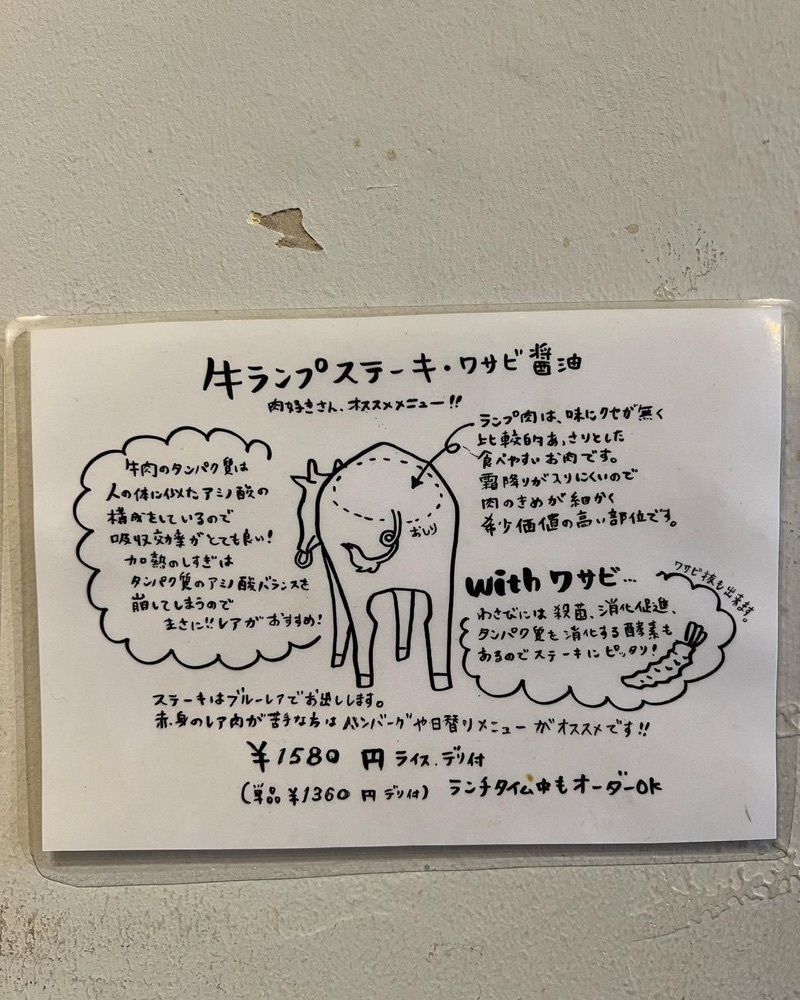 牛ランプステーキ・ワサビ醤油
肉好きさん、オススメメニュー!!
牛肉のタンパク質は
人の体に似たアミノ酸の
構成をしているので
吸収効率がとても良い!
加熱のしすぎは
タンパク質のアミノ酸バランスを
崩してしまうので
まさに!!レアがおすすめ!
ランプ肉は、味にクセが無く
比較的あっさりとした
食べやすいお肉です。
霜降りが入りにくいので
肉のきめが細かく
希少価値の高い部位です。
おしり
withワサビ…
ワサビ抜も出来ます。
わさびには殺菌、消化促進、
タンパク質を消化する酵素も
あるのでステーキにピッタリ!
ステーキはブルーレアでお出しします。
赤身のレア肉が苦手な方はハンバーグや日替りメニューがオススメです!!
¥1580円 ライス、デリ付
(単品¥1360円 デリ付) ランチタイム中もオーダーOK